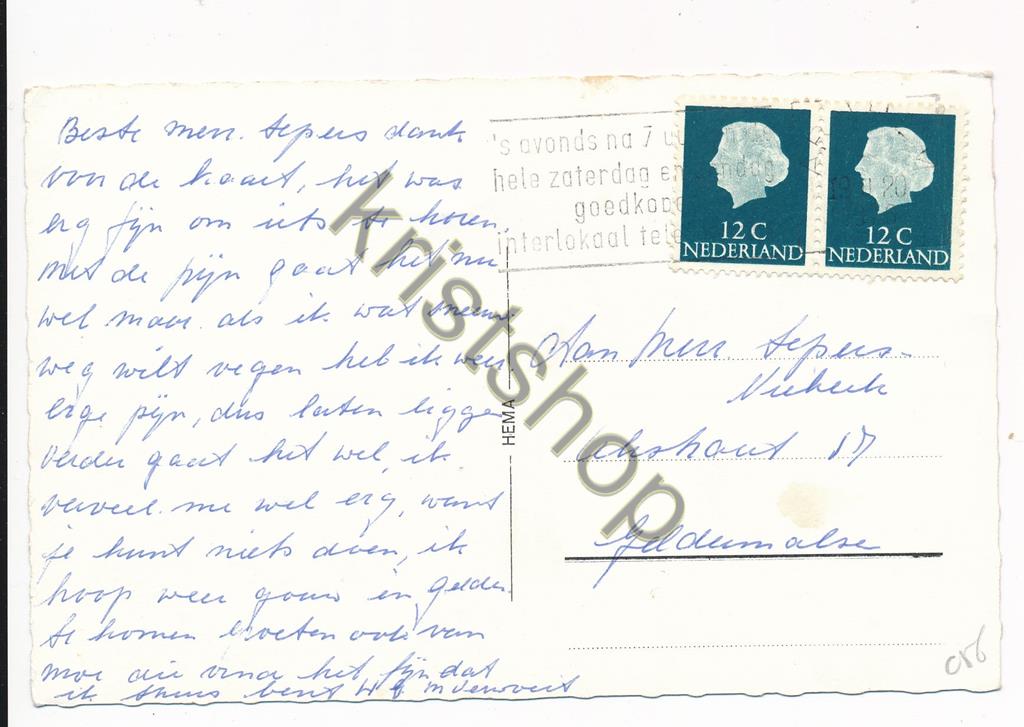 Beste mevr. Sepers dank
voor de kaart, het was
erg fijn om iets te horen,
met de pijn gaat het nu
wel maar als ik wat
weg wilt vegen heb ik weer
erge pijn, dus laten liggen
verder gaat het wel, ik
verveel me wel erg, want
je kunt niets doen, ik
hoop weer gauw in Gelder
te komen groeten ook van
moe die vind het fijn dat
ik thuis bent
's avonds na 7 u
hele zaterdag en zondag
goedkop
interlokaal tele
12 C
NEDERLAND
12 C
NEDERLAND
Aan Mevr. Sepers-
HEMA
17
Geldermalsen
kristshop